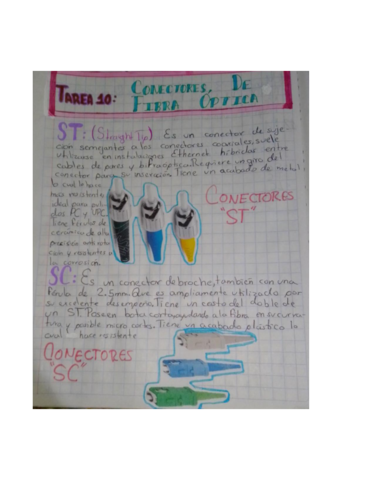 TAREA 10:
CONECTORES DE
FIBRA ÓPTICA
ST: (Straight Tip) Es un conector de
con semejantes a los conectores coaxiales, suele
utilizarse en instalaciones Ethernet híbridas entre
cables de pares y fibra óptica. Requiere un giro del
conector para la inserción. Tiene un acabado de metal,
lo cual lo hace
mas resistente
ideal para
PC y UPC
Tiene férula de
cerámica de alta
CONECTORES
"ST"
SC: Es un conector de broche, también con una
férula de 2.5mm. Que es ampliamente utilizado por
su excelente desempeño. Tiene un costo del doble de
un ST. Poseen botas cortas ayudando a la fibra
y posible micro cortes. Tiene un acabado plástico lo
cual hace resistente
CONECTORES
"SC"